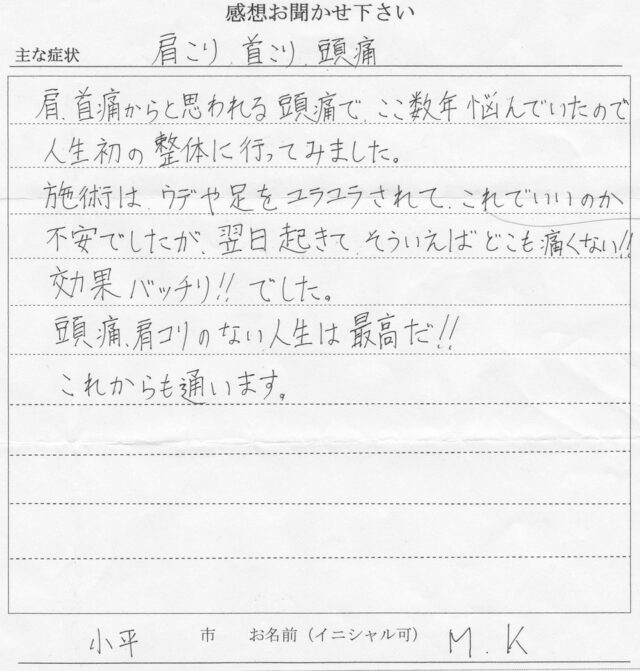 感想お聞かせ下さい
主な症状 肩こり、首こり、頭痛
肩、首痛からと思われる頭痛で、ここ数年悩んでいたので
人生初の整体に行ってみました。
施術は、ウデや足をユラユラされて、これでいいのか
不安でしたが、翌日起きて、そういえばどこも痛くない!!
効果バッチリ!!でした。
頭痛、肩コリのない人生は最高だ!!
これからも通います。
小平 市 お名前(イニシャル可) M.K